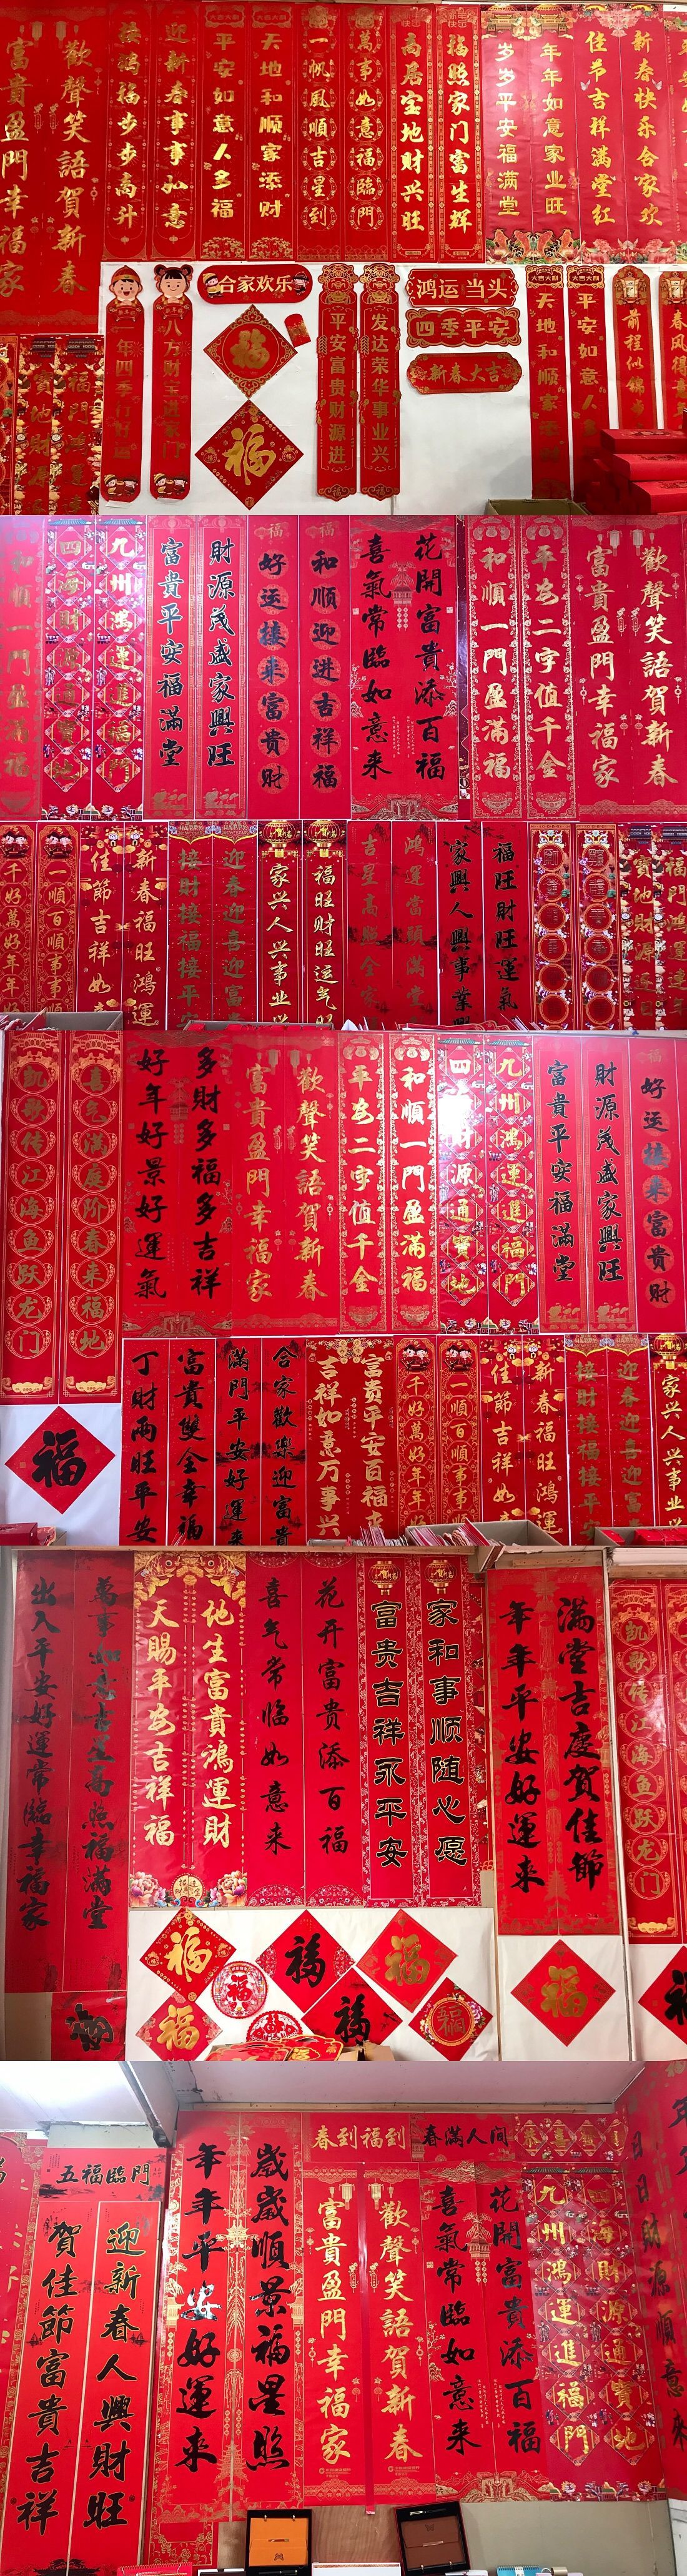 歡聲笑語賀新春
富貴盈門幸福家
迎新春事事如意
接鴻福步步高升
天地和顺家添财
平安如意人多福
萬事如意福臨門
一帆風順吉星到
福照家门富生辉
高居宝地财兴旺
年年如意家业旺
岁岁平安福满堂
新春快乐合家欢
佳节吉祥满堂红
大吉大利
大吉大利
福門鴻運
寶地財源
一年四季行好运
八方财宝进家门
合家欢乐
福
福
平安富贵财源进
发达荣华事业兴
鸿运当头
四季平安
新春大吉
大吉大利
大吉大利
天地和顺家添
平安如意人
前程似锦
春风得意
和順一門盈滿福
九州鴻運進福門
四海財源通寶地
財源茂盛家興旺
富貴平安福滿堂
福
福
和顺迎进吉祥福
好运接来富贵财
花開富貴添百福
喜氣常臨如意来
平安二字值千金
和順一門盈滿福
歡聲笑語賀新春
富貴盈門幸福家
一順百順事事
千好萬好年年
新春福旺鴻運
佳節吉祥如
迎春迎喜迎富
接財接福接平
福旺财旺运气
家兴人兴事业
鴻運當頭滿堂
吉星高照全家
福旺財旺運氣
家興人興事業
福門鴻運連年
寶地財源
喜气满庭阶春来福地
凯歌传江海鱼跃龙门
多財多福多吉祥
好年好景好運氣
歡聲笑語賀新春
富貴盈門幸福家
和順一門盈滿福
平安二字值千金
九州鴻運進福門
四源通寶地
財源茂盛家興旺
富貴平安福滿堂
福
好运接来富贵财
福
富貴雙全幸福
丁財兩旺平安
合家歡樂迎富貴
滿門平安好運来
富贵平安百福
吉祥如意万事兴
一順百順事事
千好萬好年年
新春福旺鴻運
佳節吉祥如
迎春迎喜迎富
接財接福接平
家兴人兴事业
萬事如意吉星高照福滿堂
出入平安好運常臨幸福家
地生富貴鴻運財
天賜平安吉祥福
花开富贵添百福
喜气常临如意来
家和事顺随心愿
富贵吉祥永平安
满堂吉慶賀佳節
年年平安好運来
凯歌传江海鱼跃龙门
福
福
福
福
福
福
福
福
五福臨門
迎新春人興財旺
賀佳節富貴吉祥
歲歲順景福星照
年年平安好運来
春到福到
歡聲笑語賀新春
富貴盈門幸福家
春滿人间
花開富貴添百福
喜氣常臨如意来
四海財源通寶地
九州鴻運進福門
日日財源順意來